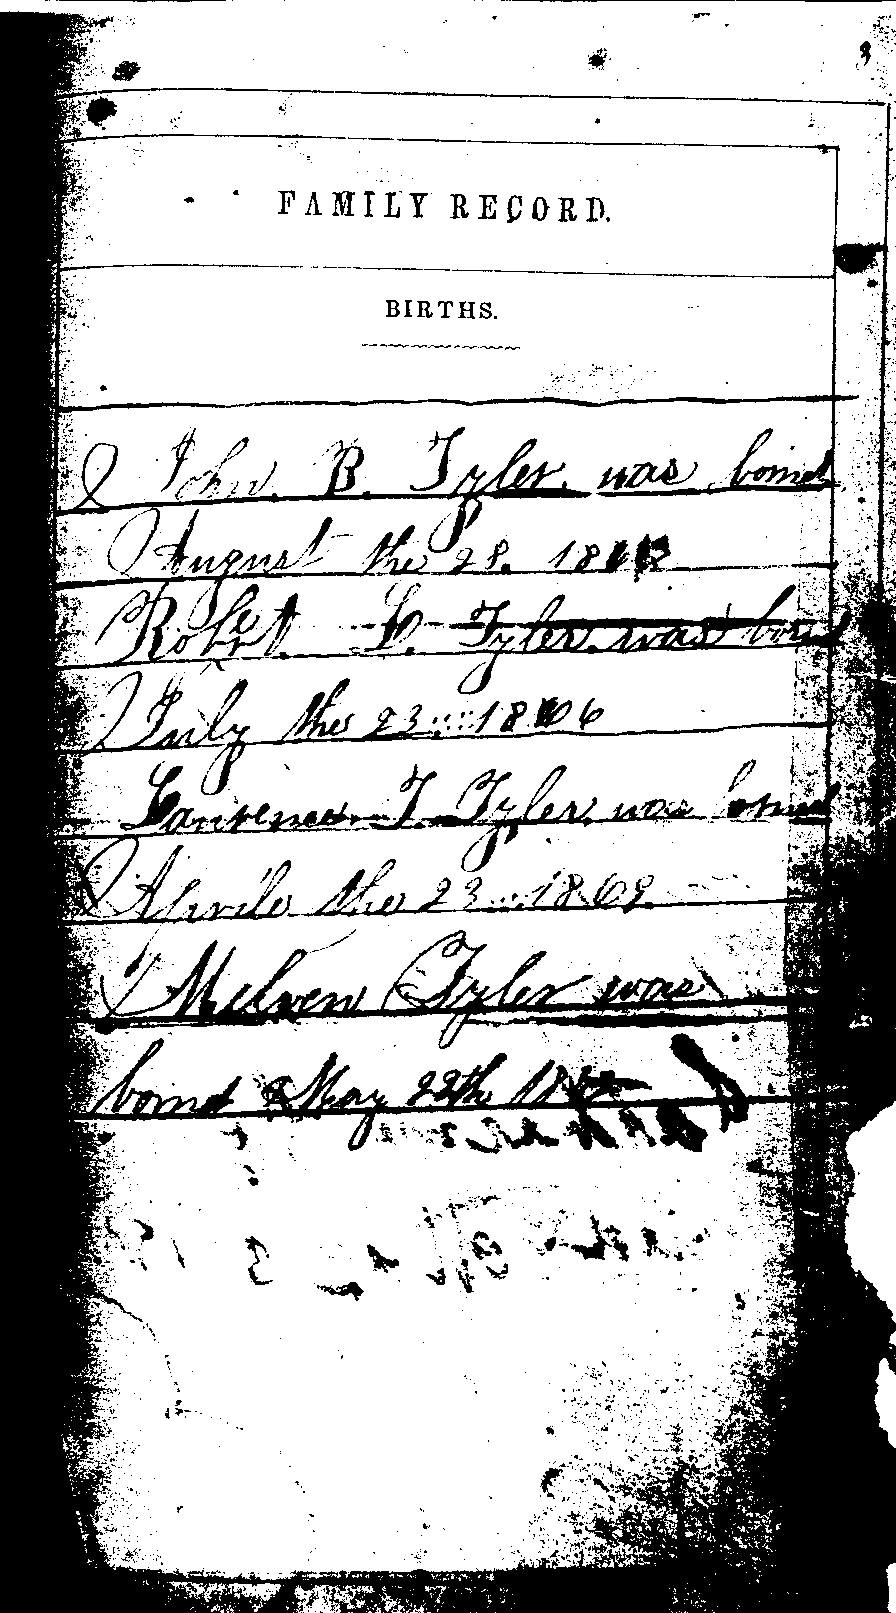 FAMILY RECORD.
BIRTHS.
John. B. Tyler. was bornd
August the 28. 18
Robert. L. Tyler. was bornd
July the 23 18 6
Laurence. T. Tyler. was bornd
Aprile the 23 1869
Melven Tyler was
bornd May 22th